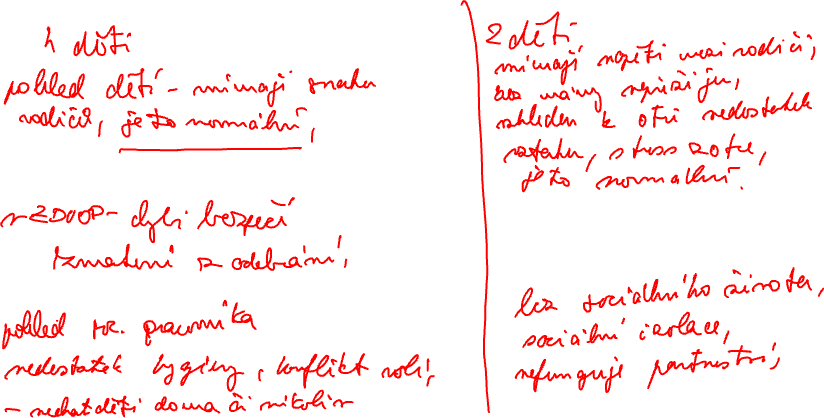 4 děti
pohled dětí - vnímají snahu
rodičů, je to normální,
v ZDVOP - chybí bezpečí
zmatení z odebrání,
pohled soc. pracovníka
nedostatek hygieny, konflikt rolí,
- nechat děti doma či nikoliv
2 děti
vnímají napětí mezi rodiči,
bez mámy nepřežiju,
vzhledem k otci nedostatek
vztahu, stres z otce,
je to normální.
bez sociálního života,
sociální izolace,
nefunguje partnerství,